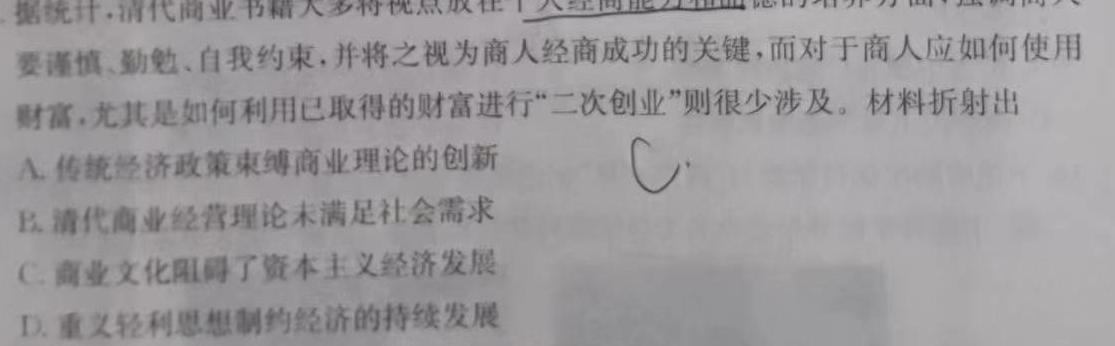 据统计,清代商业书籍大多将视点放在个人经商能力和品德的培养方面,强调商人
要谨慎、勤勉、自我约束,并将之视为商人经商成功的关键,而对于商人应如何使用
财富,尤其是如何利用已取得的财富进行“二次创业”则很少涉及。材料折射出
A. 传统经济政策束缚商业理论的创新
C.
B. 清代商业经营理论未满足社会需求
C. 商业文化阻碍了资本主义经济发展
D. 重义轻利思想制约经济的持续发展